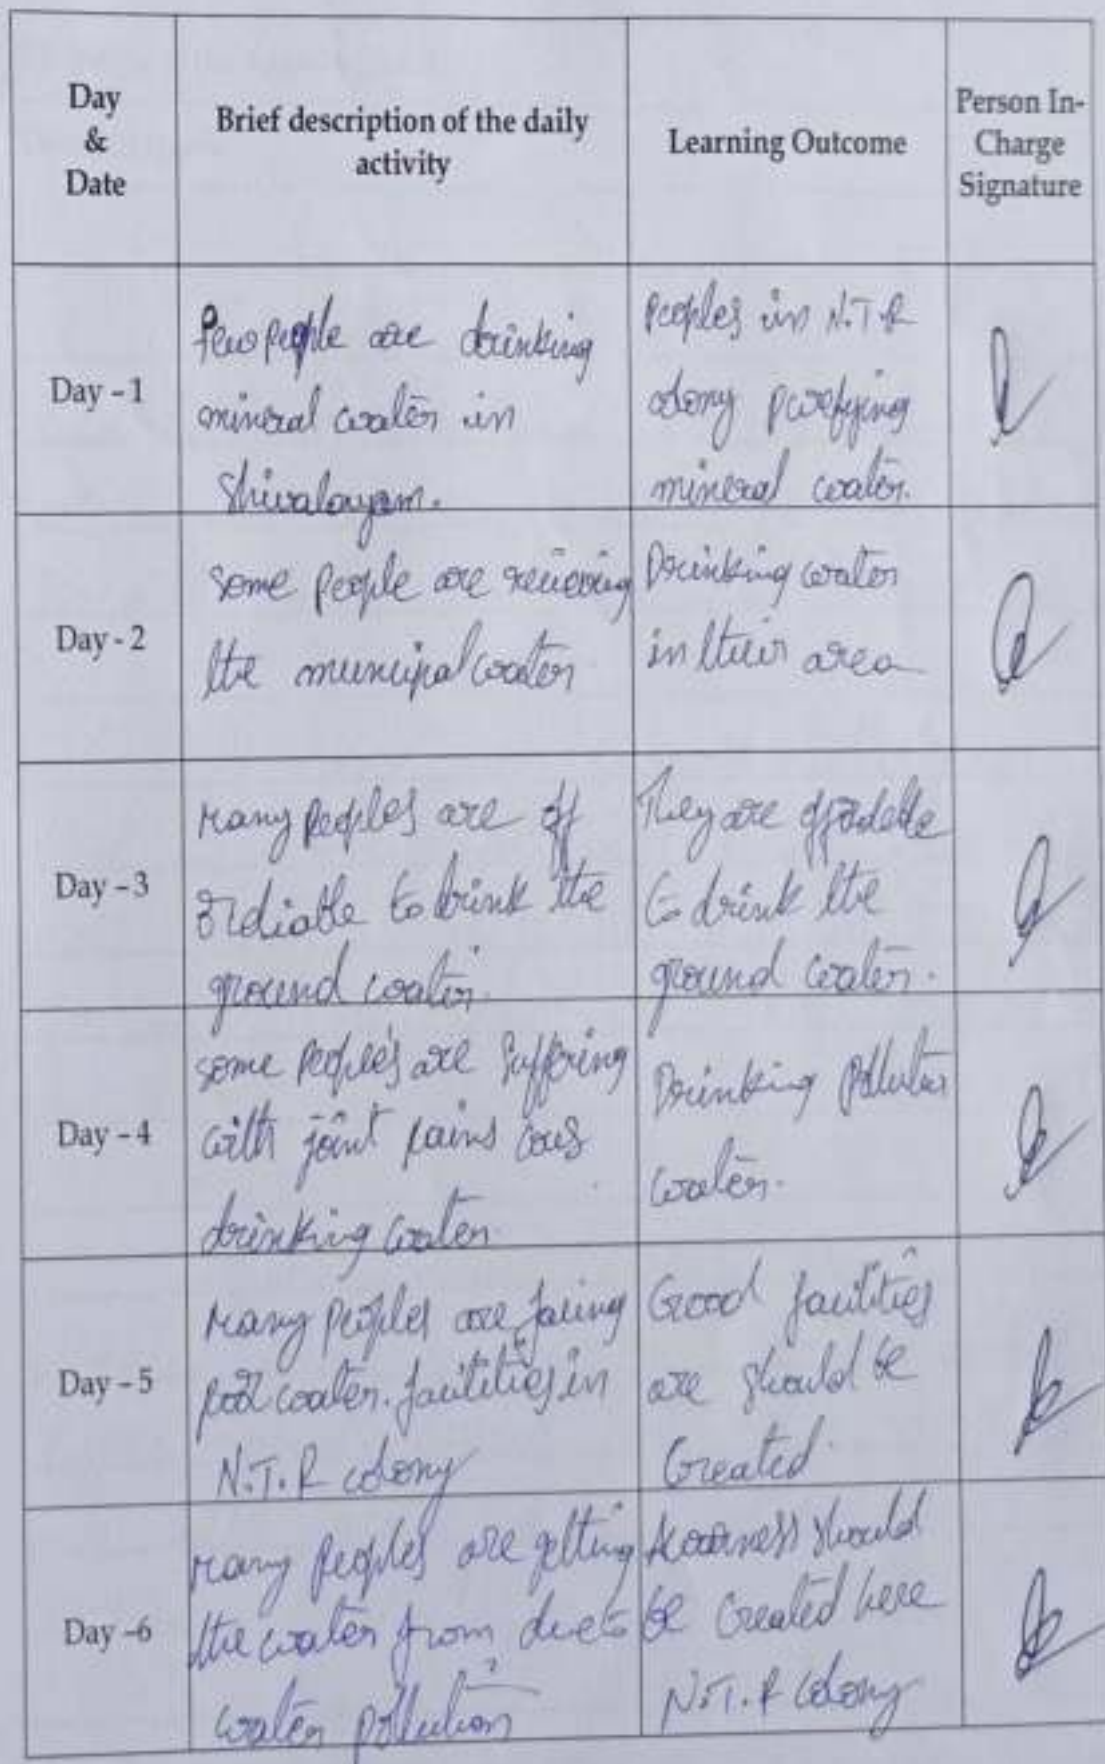 Day
&
Date
Brief description of the daily
activity
Learning Outcome
Person In-
Charge
Signature
Day - 1
Few people are drinking
mineral water in
Shivalayam.
Peoples in N.T.R
colony purefying
mineral water.
Day - 2
Some people are recieving
the muncipal water
Drinking water
in their area
Day - 3
Many peoples are aff
ordiable to drink the
ground water.
They are
to drink the
ground water.
Day - 4
some people's are suffering
with joint pains
drinking water.
Drinking
water.
Day - 5
Many peoples are facing
poor water. facilities in
N.T.R colony
Good facilities
are should be
Created.
Day -6
Many peoples are getting
the water from due to
water pollution
should
be Created here
N.T.R Colony